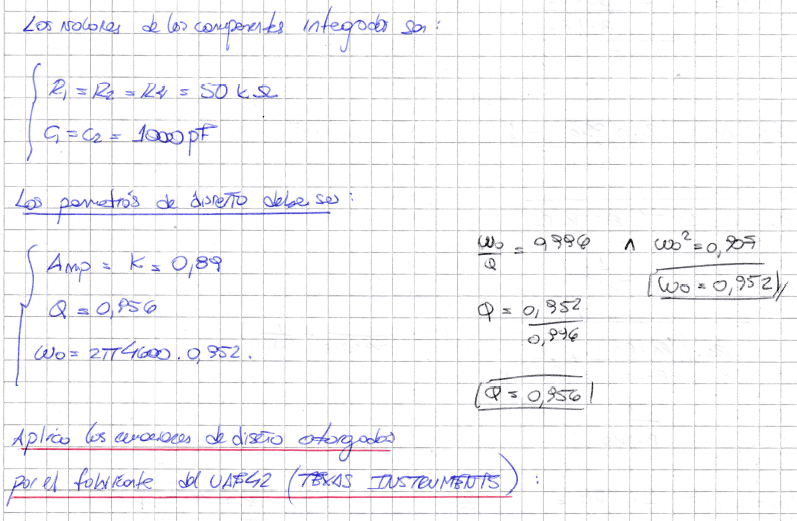 Los valores de los componentes integrados son:
R1 = R2 = R4 = 50 kΩ
C1 = C2 = 1000 pF
Los parametrós de diseño debe ser:
Amp = K = 0,89
Q = 0,956
ωo = 2π4600 . 0,952.
ωo/Q = 0,996 ∧ ωo² = 0,907
ωo = 0,952 //
Q = 0,952/0,996
Q = 0,956
Aplico las ecuaciones de diseño otorgados
por el fabricante del UAF42 (TEXAS INSTRUMENTS):